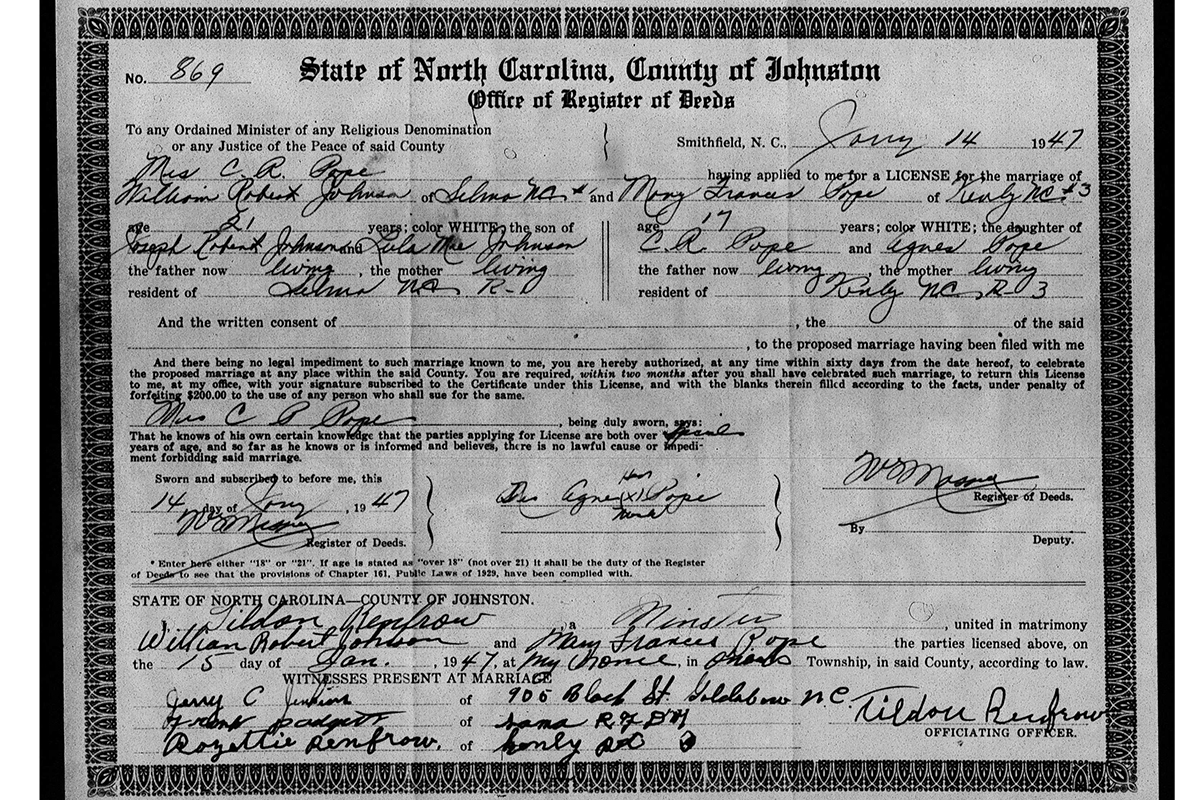 No. 869
State of North Carolina, County of Johnston
Office of Register of Deeds
To any Ordained Minister of any Religious Denomination
or any Justice of the Peace of said County
Smithfield, N. C., Jany 14 1947
Mrs C. R. Pope having applied to me for a LICENSE for the marriage of
William Robert Johnson of Selma NC #1 and Mary Frances Pope of Kenly NC #3
age 21 years; color WHITE; the son of
age 17 years; color WHITE; the daughter of
Joseph Robert Johnson and Lula Mae Johnson
C. R. Pope and Agnes Pope
the father now living, the mother living
the father now living, the mother living
resident of Selma NC R-1
resident of Kenly NC R-3
And the written consent of , the of the said
, to the proposed marriage having been filed with me
And there being no legal impediment to such marriage known to me, you are hereby authorized, at any time within sixty days from the date hereof, to celebrate
the proposed marriage at any place within the said County. You are required, within two months after you shall have celebrated such marriage, to return this License
to me, at my office, with your signature subscribed to the Certificate under this License, and with the blanks therein filled according to the facts, under penalty of
forfeiting $200.00 to the use of any person who shall sue for the same.
Mrs C R Pope, being duly sworn, says:
That he knows of his own certain knowledge that the parties applying for License are both over
years of age, and so far as he knows or is informed and believes, there is no lawful cause or impedi-
ment forbidding said marriage.
Sworn and subscribed to before me, this
14 day of Jany, 1947
Register of Deeds.
Her
Mrs Agnes (X) Pope
Mark
Register of Deeds.
By
Deputy.
* Enter here either "18" or "21". If age is stated as "over 18" (not over 21) it shall be the duty of the Register
of Deeds to see that the provisions of Chapter 161, Public Laws of 1929, have been complied with.
STATE OF NORTH CAROLINA—COUNTY OF JOHNSTON.
I, Tildon Renfrow, a Minster, united in matrimony
William Robert Johnson and Mary Frances Pope the parties licensed above, on
the 15 day of Jan., 1947, at My Home, in Township, in said County, according to law.
WITNESSES PRESENT AT MARRIAGE
Jerry C Jenkins of 905 St. N C.
of R F D
Rozettie Renfrow, of
Tildon Renfrow
OFFICIATING OFFICER.